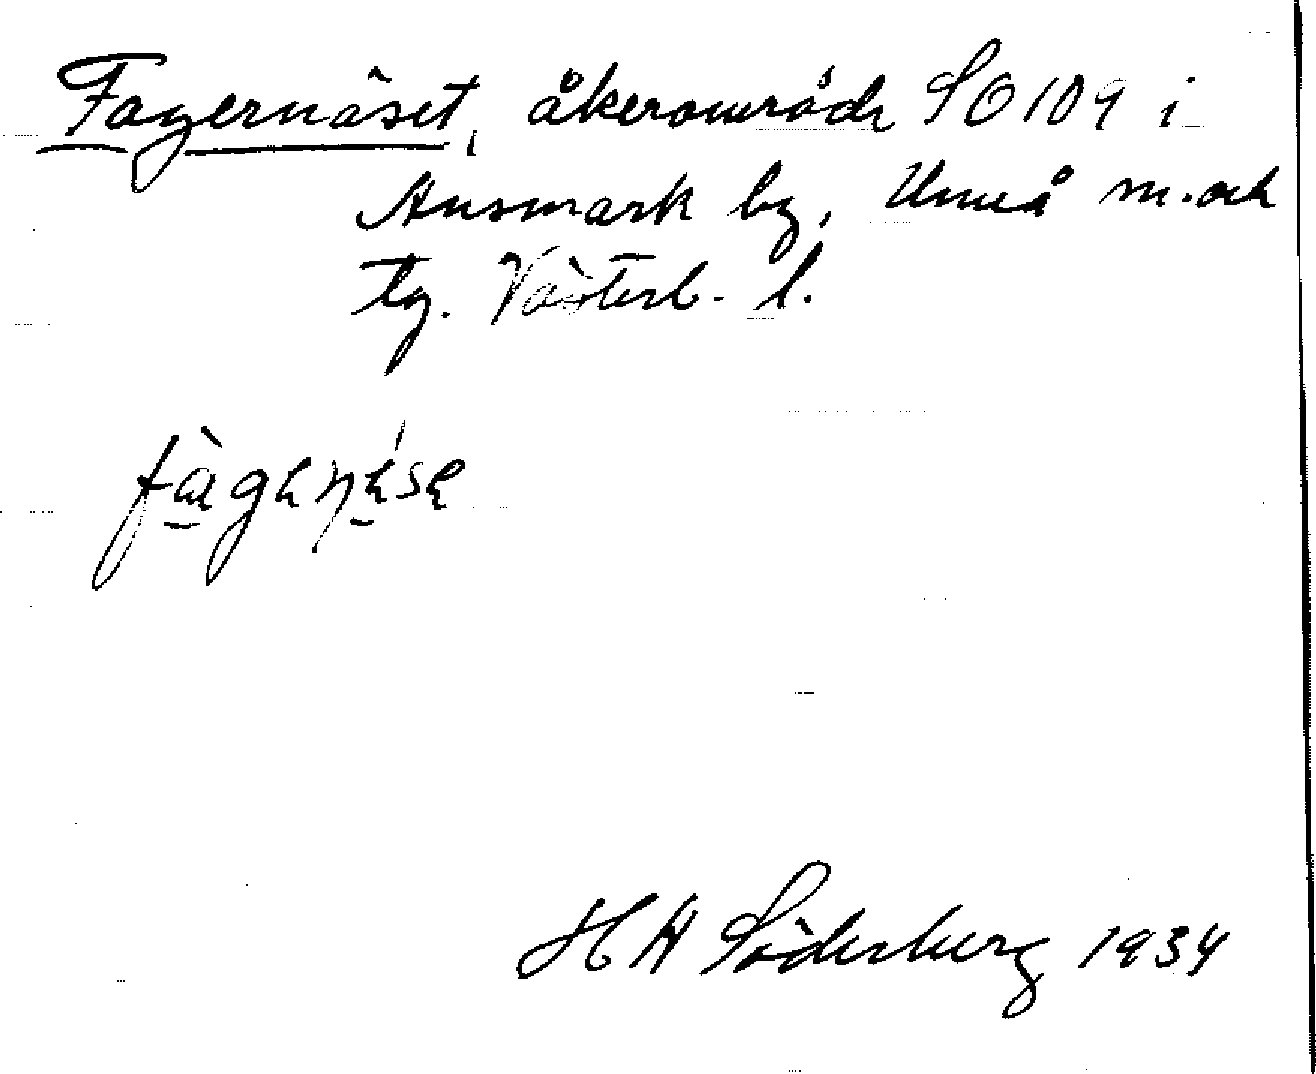 Fagernäset, åkerområde SO 109 i
Ansmark by, Umeå m. och
tg. Västerb. l.
H A Söderberg 1934